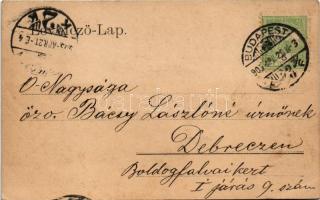 Levelező-Lap.
BUDAPEST
Ő Nagysága
özv. Bácsy Lászlóné úrnőnek
Debreczen
Boldogfalvaikert
I járás 9. szám